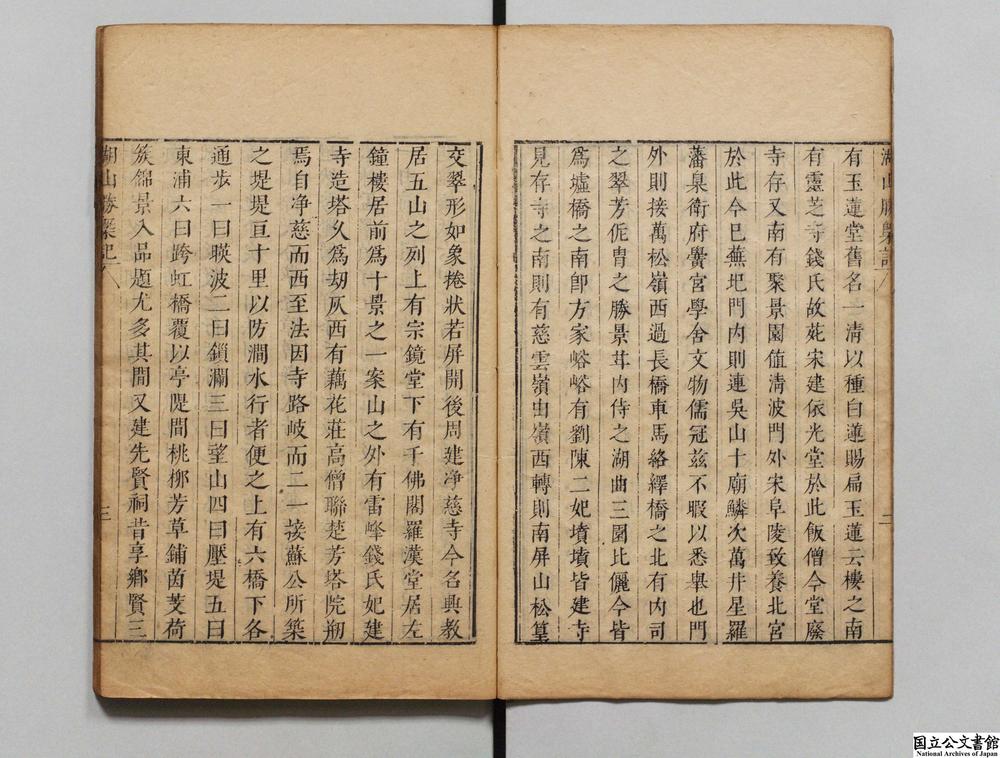 湖山勝槩記
二
有玉蓮堂舊名一清以種白蓮賜扁玉蓮云樓之南
有靈芝寺錢氏故苑宋建依光堂於此飯僧今堂廢
寺存又南有聚景園值清波門外宋阜陵致養北宮
於此今已蕪圯門内則連吳山十廟鱗次萬井星羅
藩臬衛府黌宮學舍文物儒冠兹不暇以悉舉也門
外則接萬松嶺西過長橋車馬絡繹橋之北有内司
之翠芳侂冑之勝景并内侍之湖曲三園比儷今皆
爲墟橋之南卽方家峪峪有劉陳二妃墳墳皆建寺
見存寺之南則有慈雲嶺由嶺西轉則南屏山松篁
交翠形如象捲狀若屏開後周建净慈寺今名興教
居五山之列上有宗鏡堂下有千佛閣羅漢堂居左
鐘樓居前爲十景之一案山之外有雷峰錢氏妃建
寺造塔久爲刼灰西有藕花莊高僧聯楚芳塔院剏
焉自净慈而西至法因寺路岐而二一接蘇公所築
之堤堤亘十里以防澗水行者便之上有六橋下各
通步一曰暎波二曰鎖瀾三曰望山四曰壓堤五曰
東浦六曰跨虹橋覆以亭隄間桃栁芳草鋪茵芰荷
簇錦景入品題尤多其間又建先賢祠昔享鄉賢三
湖山勝槩記
三
国立公文書館
National Archives of Japan